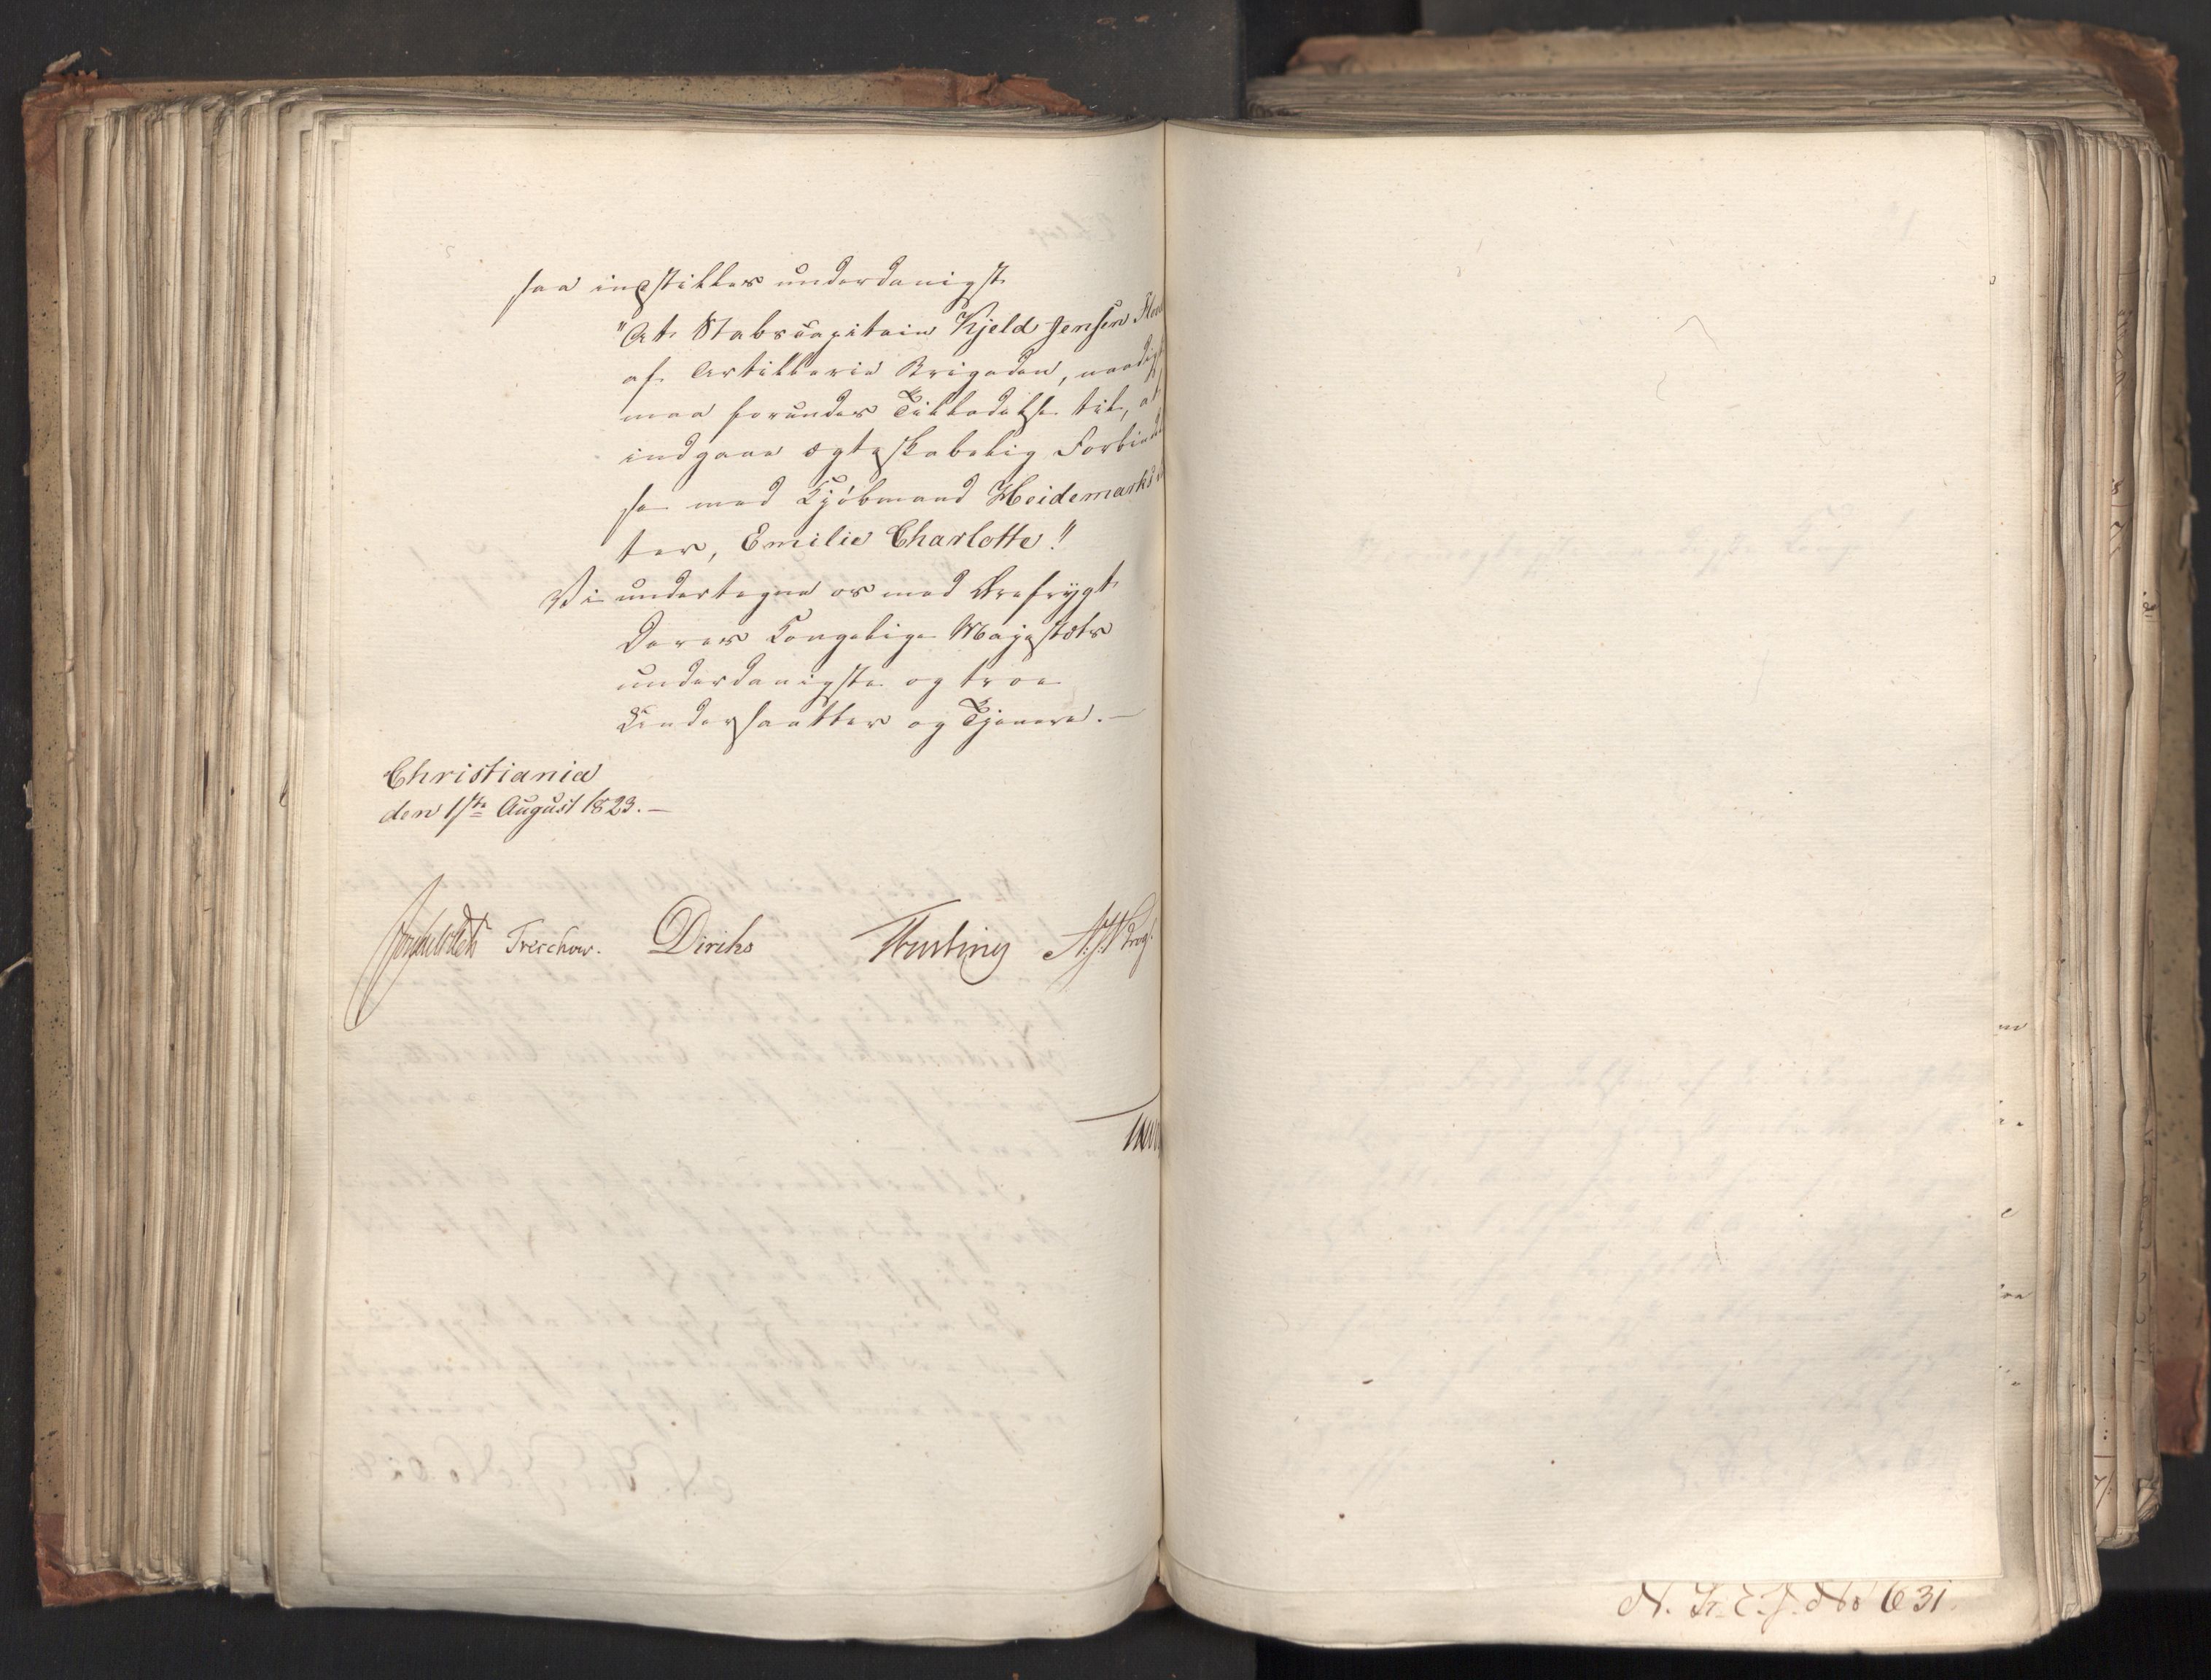 saa indstilles underdanigst
"At Stabscapitain Kjeld Jensen
af Artillerie Brigaden, naadigst
maa forundes Tilladelse til, at
indgaae ægteskabelig Forbindel
se med Kjøbmand Heidemarks
ter, Emilie Charlotte."
Vi undertegne os med Ærefrygt
Deres Kongelige Majestæts
underdanigste og troe
Undersaatter og Tjenere. —
Christiania
den 1ste August 1823. —
Treschow. Diriks
N. K. E. J. No 631.